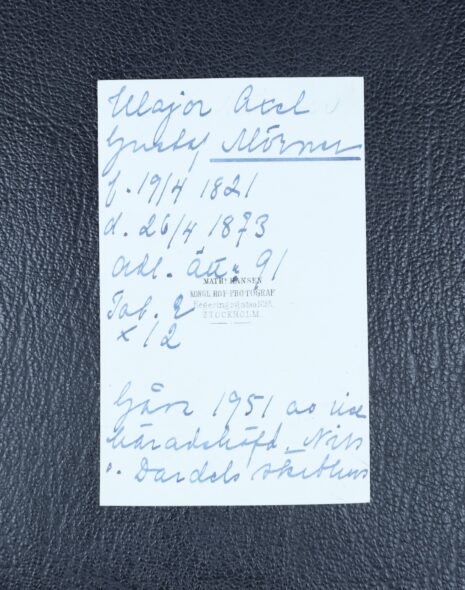 Major Axel
Gustaf Mörner
f. 19/4 1821
d. 26/4 1873
adl. ätt. 91
MATH. HANSEN
KONGL. HOF-PHOTOGRAF
STOCKHOLM.
Tab. 2
x 12
Gåva 1951 av
häradshöfd. Nils
v. Dardels